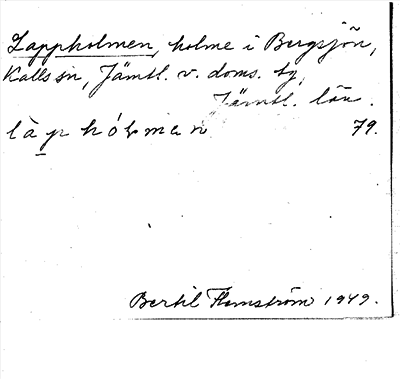 Lappholmen, holme i Bergsjön,
Kalls sn, Jämtl. v. doms. tg,
Jämtl. län.
làp hólman 79.
Bertil Flemström 1949.